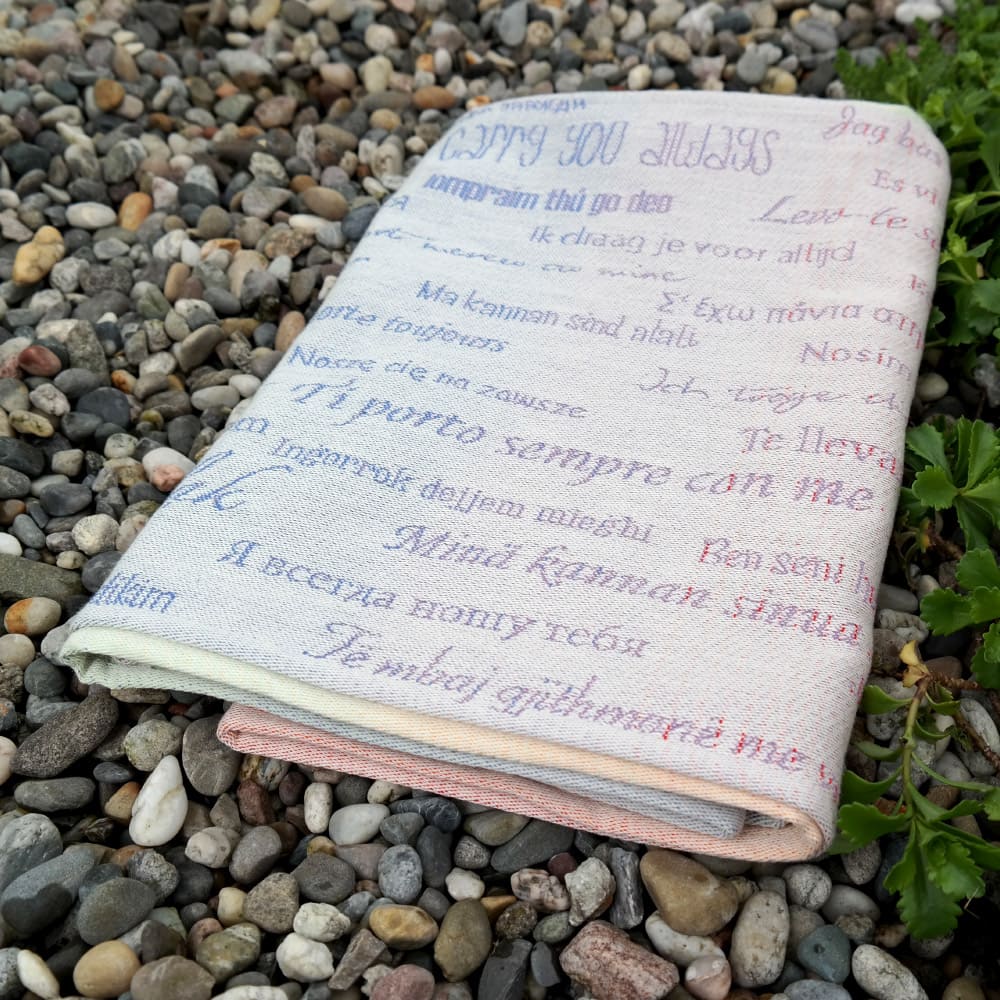 Carry you always
Jag bär
Es vi
iompraím thú go deo
Levo-te s
Ik draag je voor altijd
Ma kannan sind alati
Σ' έχω πάντα
orte toujours
Nosím
Noszę cię na zawsze
Ich trage
Ti porto sempre con me
Te lleva
Ingorrok dejjem mieghi
Minä kannan sinua
Ben seni h
Я всегда ношу тебя
Të mbaj gjithmonë me